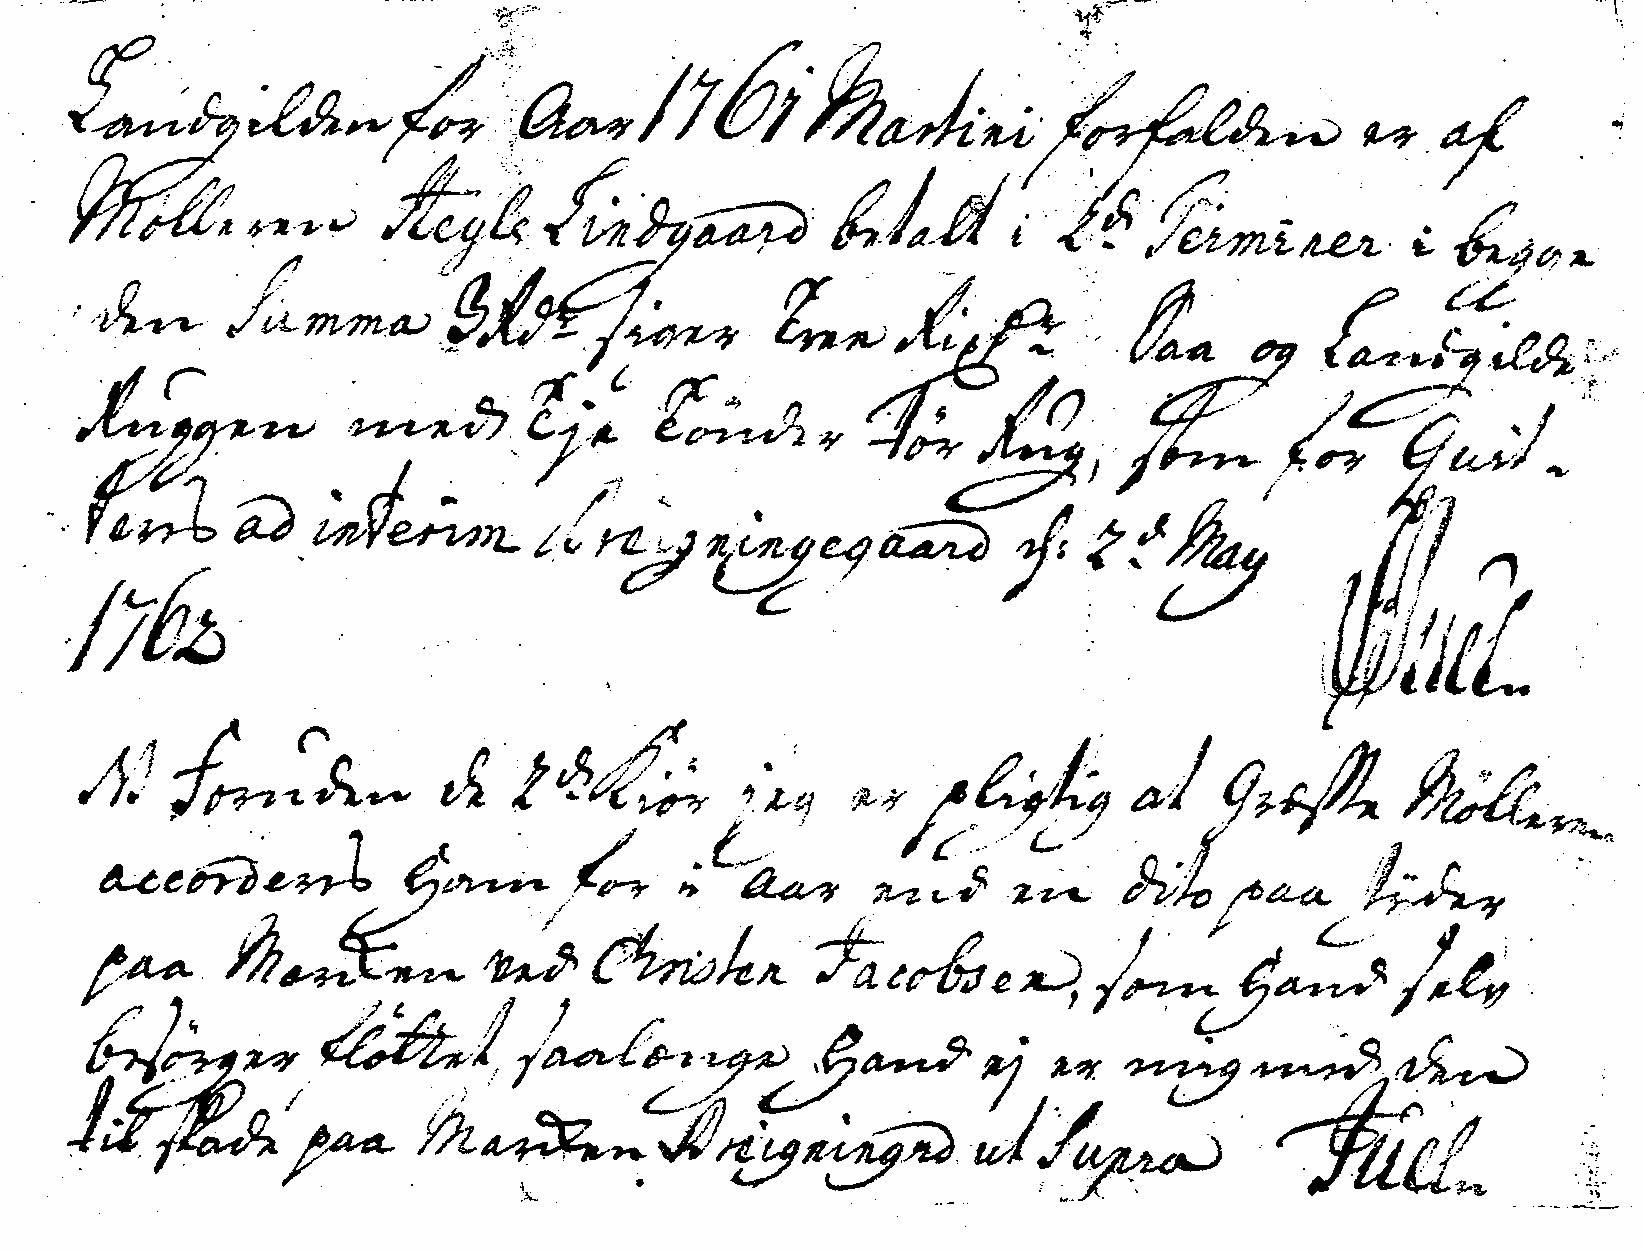 Landgilden for Aar 1761 Martini forfalden er af
Mölleren Lindgaard betalt i 2de Terminer i begge
den Summa 3 Rdr siger Tree Rixdr Saa og Landgilde
Ruggen med Tje Tönder Tör Rug, som for Qvit-
terrs ad interim Dreigningegaard d: 2d May
1762 Juel
NB Foruden de 2de Kiör jeg er pligtig at Græsse Mölleren
accorderrs Ham for i Aar end en dito paa tÿder
paa Marcken ved Christen Jacobsen, som Hand selv
besörger flöttet, saalænge Hand ej er mig med den
til skade paa Marcken Dreigningrd ut Supra Juel